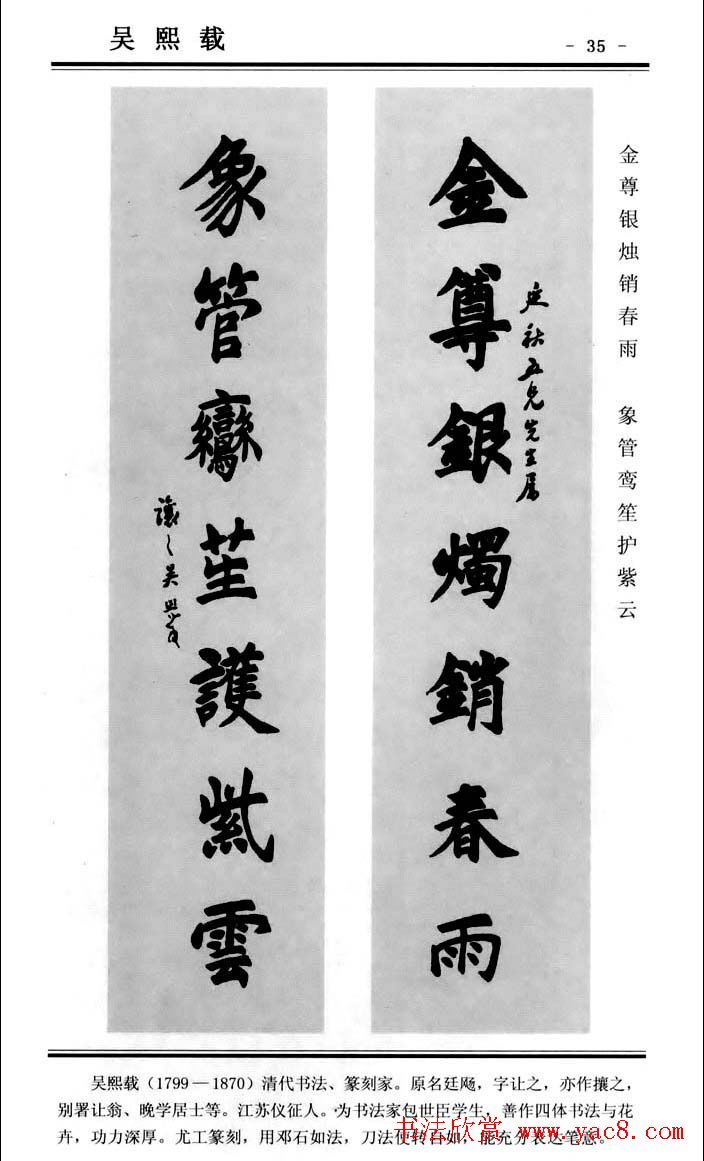 吴熙载
- 35 -
金尊银烛销春雨 象管鸾笙护紫云
金尊銀燭銷春雨
五兄先生属
象管鸞笙護紫雲
讓之吴熙載
吴熙载(1799—1870)清代书法、篆刻家。原名廷飏,字让之,亦作攘之,
别署让翁、晚学居士等。江苏仪征人。为书法家包世臣学生,善作四体书法与花
卉,功力深厚。尤工篆刻,用邓石如法,刀法使转自如,能充分表达笔意。
书法欣赏 www.yac8.com